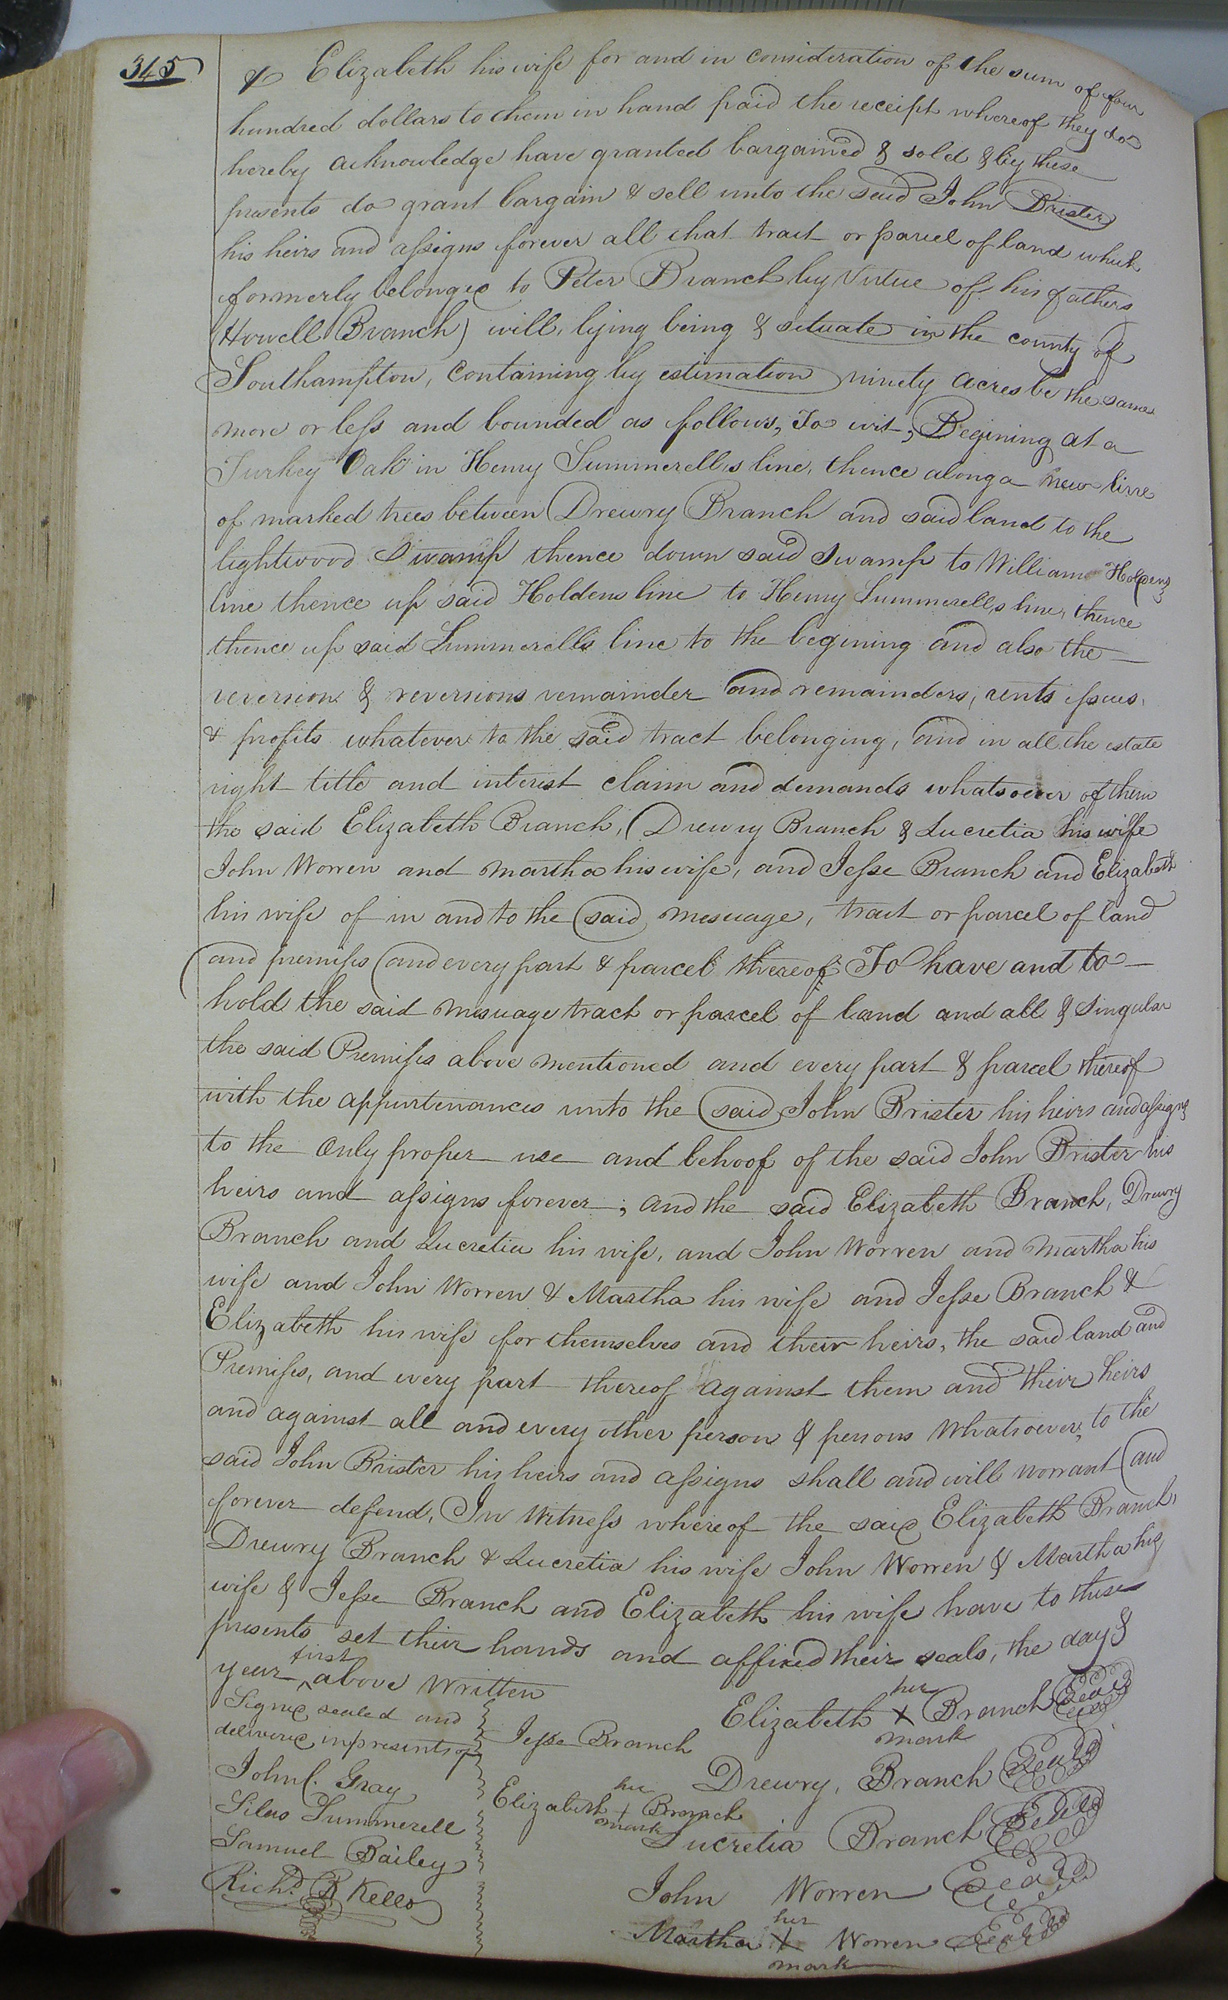 345
& Elizabeth his wife for and in consideration of the sum of four
hundred dollars to them in hand paid the receipt whereof they do
hereby acknowledge have granted bargained & sold & by these
presents do grant bargain & sell unto the said John Brister
his heirs and assigns forever all that tract or parcel of land which
formerly belonged to Peter Branch by Virtue of his fathers
(Howell Branch) will, lying being & situate in the county of
Southampton, containing by estimation ninety acres be the same
more or less and bounded as follows, To wit; Begining at a
Turkey Oak in Henry Summerells line, thence along a new line
of marked trees between Drewry Branch and said land to the
lightwood Swamp thence down said Swamp to William Holdens
line thence up said Holdens line to Henry Summerells line, thence
thence up said Summerells line to the begining and also the
reversion & reversions remainder and remainders, rents issues,
& profits whatever to the said tract belonging, and in all the estate
right title and interest claim and demands whatsoever of them
the said Elizabeth Branch, Drewry Branch & Lucretia his wife
John Worren and Martha his wife, and Jesse Branch and Elizabeth
his wife of in and to the said mesuage, tract or parcel of land
and premises and every part & parcel thereof To have and to
hold the said mesuage tract or parcel of land and all & singular
the said Premises above mentioned and every part & parcel thereof
with the appurtenances unto the said John Brister his heirs and assigns
to the only proper use and behoof of the said John Brister his
heirs and assigns forever; and the said Elizabeth Branch, Drewry
Branch and Lucretia his wife, and John Worren and Martha his
wife and John Worren & Martha his wife and Jesse Branch &
Elizabeth his wife for themselves and their heirs, the said land and
Premises, and every part thereof against them and their heirs
and against all and every other person & persons Whatsoever, to the
said John Brister his heirs and assigns shall and will worrant and
forever defend, In Witness whereof the said Elizabeth Branch,
Drewry Branch & Lucretia his wife John Worren & Martha his
wife & Jesse Branch and Elizabeth his wife have to these
presents set their hands and affixed their seals, the day &
year first above Written
Signed sealed and
delivered in presents of
John C. Gray
Silas Summerell
Samuel Bailey
Richd. B Kello
Jesse Branch
Elizabeth her + mark Branch
Elizabeth her X mark Branch Seal
Drewry, Branch Seal
Lucretia Branch Seal
John Worren Seal
Martha her X mark Worren Seal